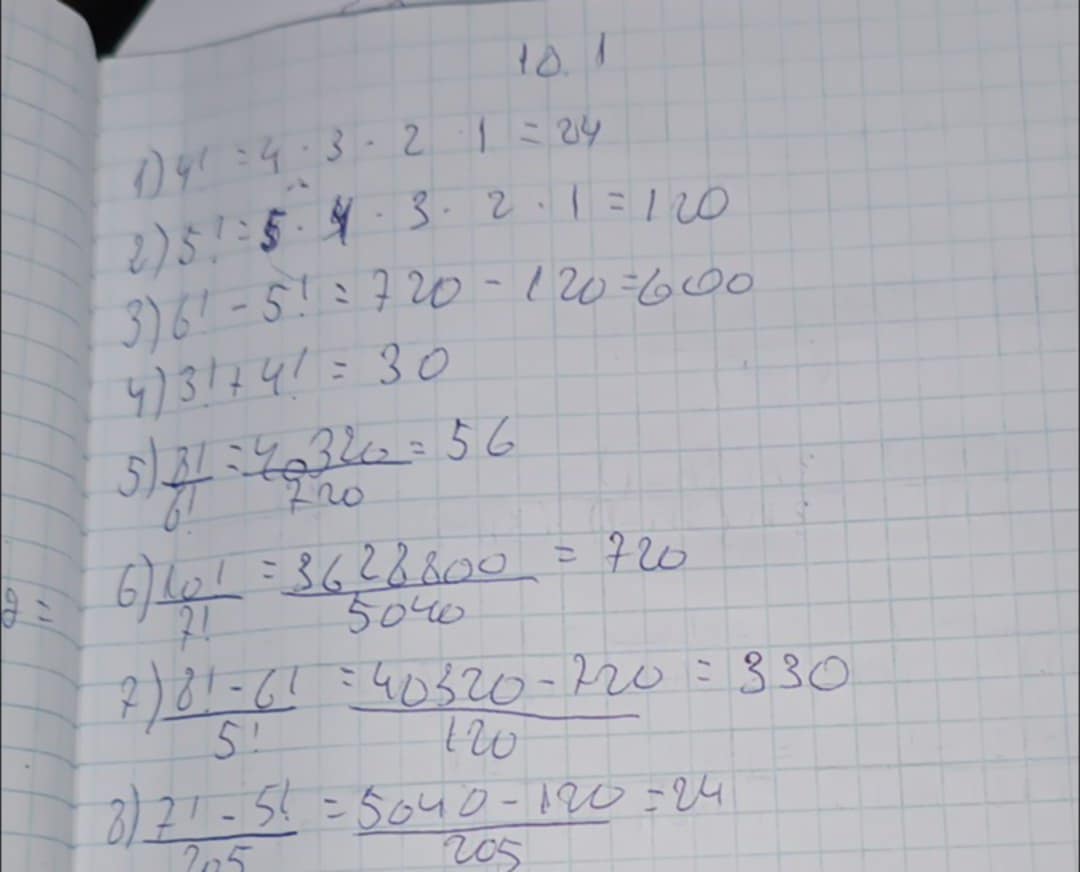 10.1
1) 4! = 4 · 3 · 2 · 1 = 24
2) 5! = 5 · 4 · 3 · 2 · 1 = 120
3) 6! - 5! = 720 - 120 = 600
4) 3! + 4! = 30
5) 8!/6! = 40320/720 = 56
6) 10!/7! = 3628800/5040 = 720
7) (8! - 6!)/5! = (40320 - 720)/120 = 330
8) (7! - 5!)/205 = (5040 - 120)/205 = 24